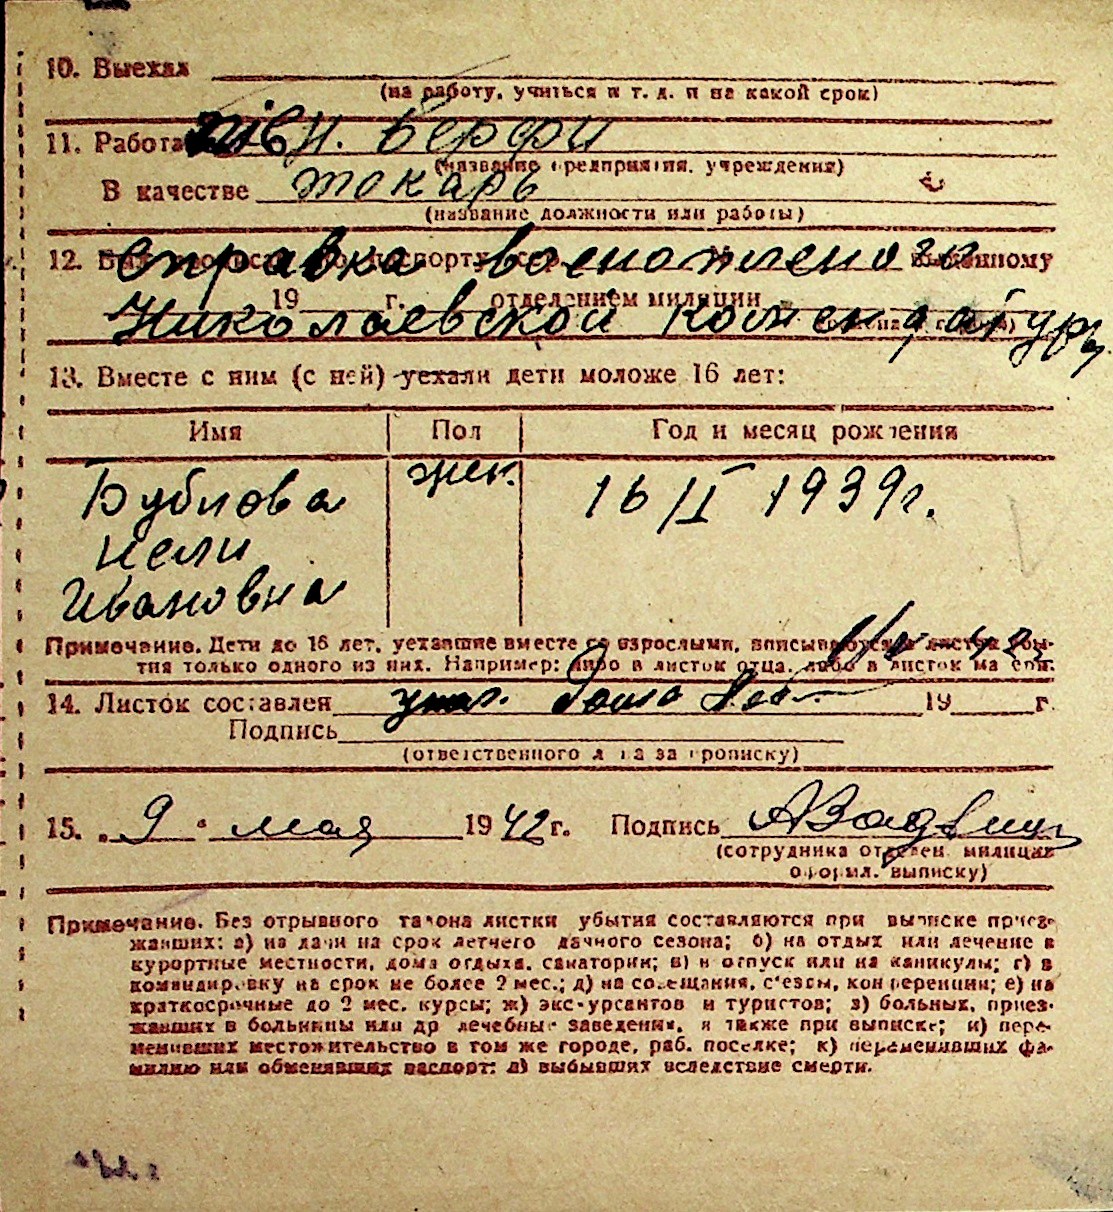 10. Выехал
(на работу, учиться и т. д. и на какой срок)
11. Работа Півн. Верфи
(название предприятия, учреждения)
В качестве токарь
(название должности или работы)
12. справка военопленого выданному
19 г. отделением милиции
Николаевской комендатуры
13. Вместе с ним (с ней) уехали дети моложе 16 лет:
Имя Пол Год и месяц рождения
Бубнова жен. 16/II 1939г.
Нели
Ивановна
Примечание. Дети до 16 лет, уехавшие вместе со взрослыми, вписываются в листок убы-
тия только одного из них. Например: либо в листок отца, либо в листок матери.
14. Листок составлен 19 г.
Подпись
(ответственного лица за прописку)
15. „9“ мая 1942г. Подпись
(сотрудника отделен. милиции
оформл. выписку)
Примечание. Без отрывного талона листки убытия составляются при выписке приез-
жавших: а) на дачи на срок летнего дачного сезона; б) на отдых или лечение в
курортные местности, дома отдыха, санатории; в) в отпуск или на каникулы; г) в
командировку на срок не более 2 мес.; д) на совещания, съезды, конференции; е) на
краткосрочные до 2 мес. курсы; ж) экскурсантов и туристов; з) больных, приез-
жавших в больницы или др лечебные заведения, а также при выписке; и) пере-
менивших местожительство в том же городе, раб. поселке; к) переменявших фа-
милию или обменявших паспорт; л) выбывших вследствие смерти.